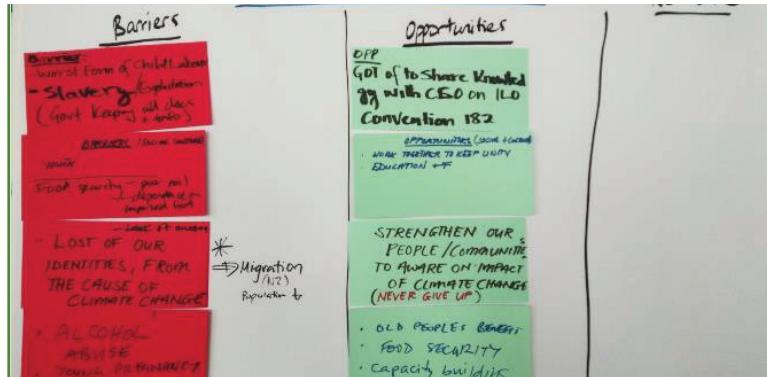 Barriers
Barrier:
Worst Form of Child Labour
- Slavery/Exploitation
(Govt Keeping all docs
+ info)
BARRIERS (SOCIAL
Food security - poor soil
- dependence on
imported food
- LOST OF OUR
IDENTITIES, FROM
THE CAUSE OF
CLIMATE CHANGE
* ⇒ Migration
(NZ)
Population
• ALCOHOL
ABUSE
• YOUNG PREGNANCY
Opportunities
OPP
GOT of to Share Knowled
gg with CEO on ILO
Convention 182
OPPORTUNITIES (SOCIAL + CULTURAL
• WORK TOGETHER TO KEEP UNITY
• EDUCATION
• STRENGTHEN OUR
PEOPLE/COMMUNITIES
TO AWARE ON IMPACT
OF CLIMATE CHANGE
(NEVER GIVE UP)
• OLD PEOPLES BENEFIT
• FOOD SECURITY
• Capacity building